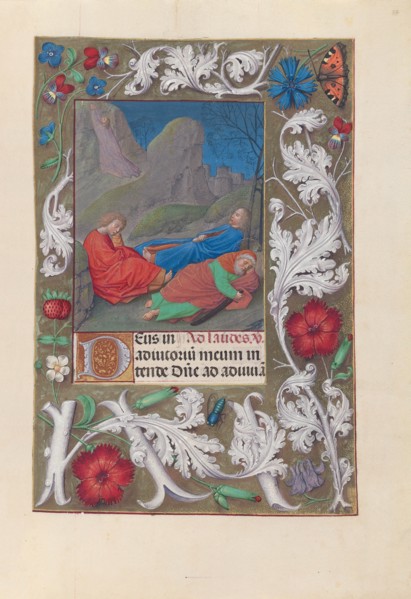 Deus in Ad laudes. V.
adiutoriū meum in
tende Dn̄e ad adiuuā